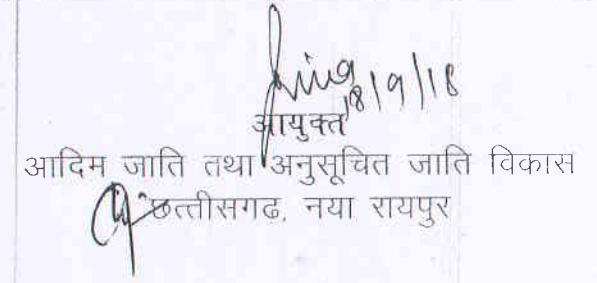 18/9/18
आयुक्त
आदिम जाति तथा अनुसूचित जाति विकास
छत्तीसगढ, नया रायपुर